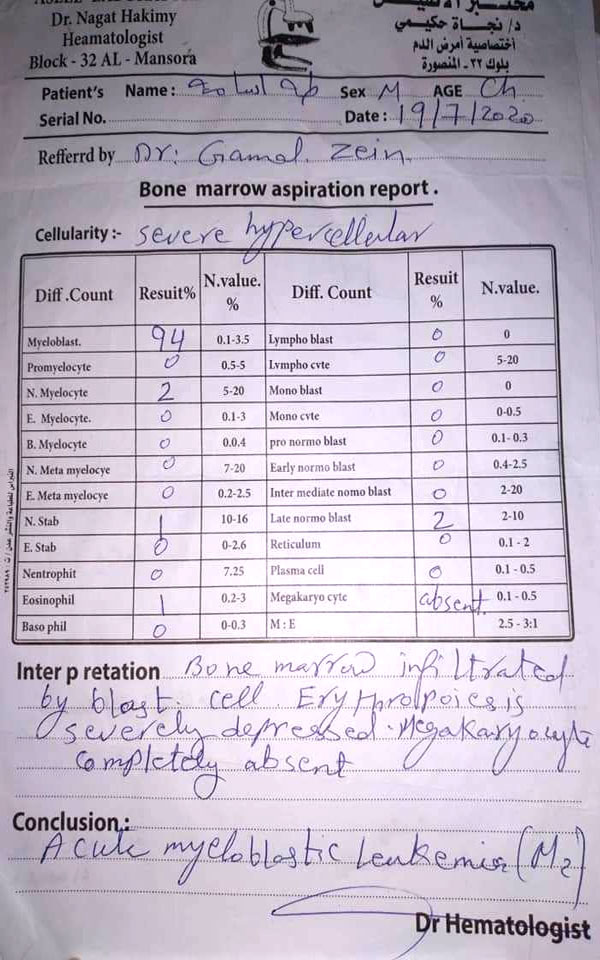 Dr. Nagat Hakimy
Heamatologist
Block - 32 AL - Mansora
د/ نجاة حكيمي
أختصاصية أمرض الدم
بلوك ٣٢ ـ المنصورة
Patient's Name : طه اسامة Sex M AGE Ch
Serial No. Date : 19/7/2020
Refferrd by Dr: Gamal. Zein.
Bone marrow aspiration report .
Cellularity :- severe hypercellular
Diff .Count Resuit% N.value. % Diff. Count Resuit % N.value.
Myeloblast. 94 0.1-3.5 Lympho blast 0 0
Promyelocyte 0 0.5-5 Lympho cyte 0 5-20
N. Myelocyte 2 5-20 Mono blast 0 0
E. Myelocyte. 0 0.1-3 Mono cyte 0 0-0.5
B. Myelocyte 0 0.0.4 pro normo blast 0 0.1- 0.3
N. Meta myelocye 0 7-20 Early normo blast 0 0.4-2.5
E. Meta myelocye 0 0.2-2.5 Inter mediate nomo blast 0 2-20
N. Stab 1 10-16 Late normo blast 2 2-10
E. Stab 0 0-2.6 Reticulum 0 0.1 - 2
Nentrophit 0 7.25 Plasma cell 0 0.1 - 0.5
Eosinophil 1 0.2-3 Megakaryo cyte absent. 0.1 - 0.5
Baso phil 0 0-0.3 M : E 2.5 - 3:1
Inter p retation Bone marrow infiltrated
by blast. cell Erythropoiesis
severely depressed. Megakaryocyte
completely absent
Conclusion :
Acute myeloblastic leukemia (M2)
Dr Hematologist